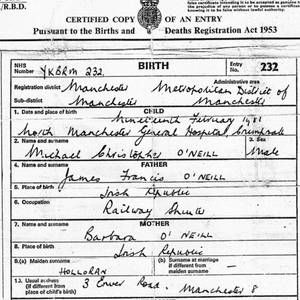 /R.B.D.
CERTIFIED COPY OF AN ENTRY
Pursuant to the Births and Deaths Registration Act 1953
NHS Number YKBRM 232 BIRTH Entry No. 232
Registration district Manchester Administrative area
Sub-district Manchester Metropolitan District of Manchester
1. Date and place of birth CHILD
Nineteenth February 1981
North Manchester General Hospital Crumpsall
2. Name and surname 3. Sex
Michael Christopher O'NEILL Male
4. Name and surname FATHER
James Francis O'NEILL
5. Place of birth
Irish Republic
6. Occupation
Railway Shunter
7. Name and surname MOTHER
Barbara O'NEILL
8. Place of birth
Irish Republic
9.(a) Maiden surname (b) Surname at marriage if different from maiden surname
HOLLORAN
10. Usual address (if different from place of child's birth)
3 Road, Manchester 8